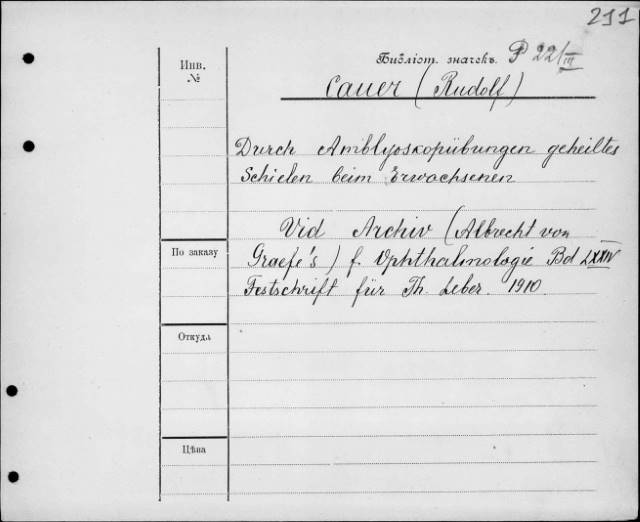 211
Инв.
№
Библіот. значекъ. P 22/III
Cauer (Rudolf)
Durch Amblyoskopübungen geheiltes
Schielen beim Erwachsenen
Vid Archiv (Albrecht von
По заказу
Graefe's) f. Ophthalmologie Bd LXXIV
Festschrift für Th. Leber. 1910
Откуда
Цѣна